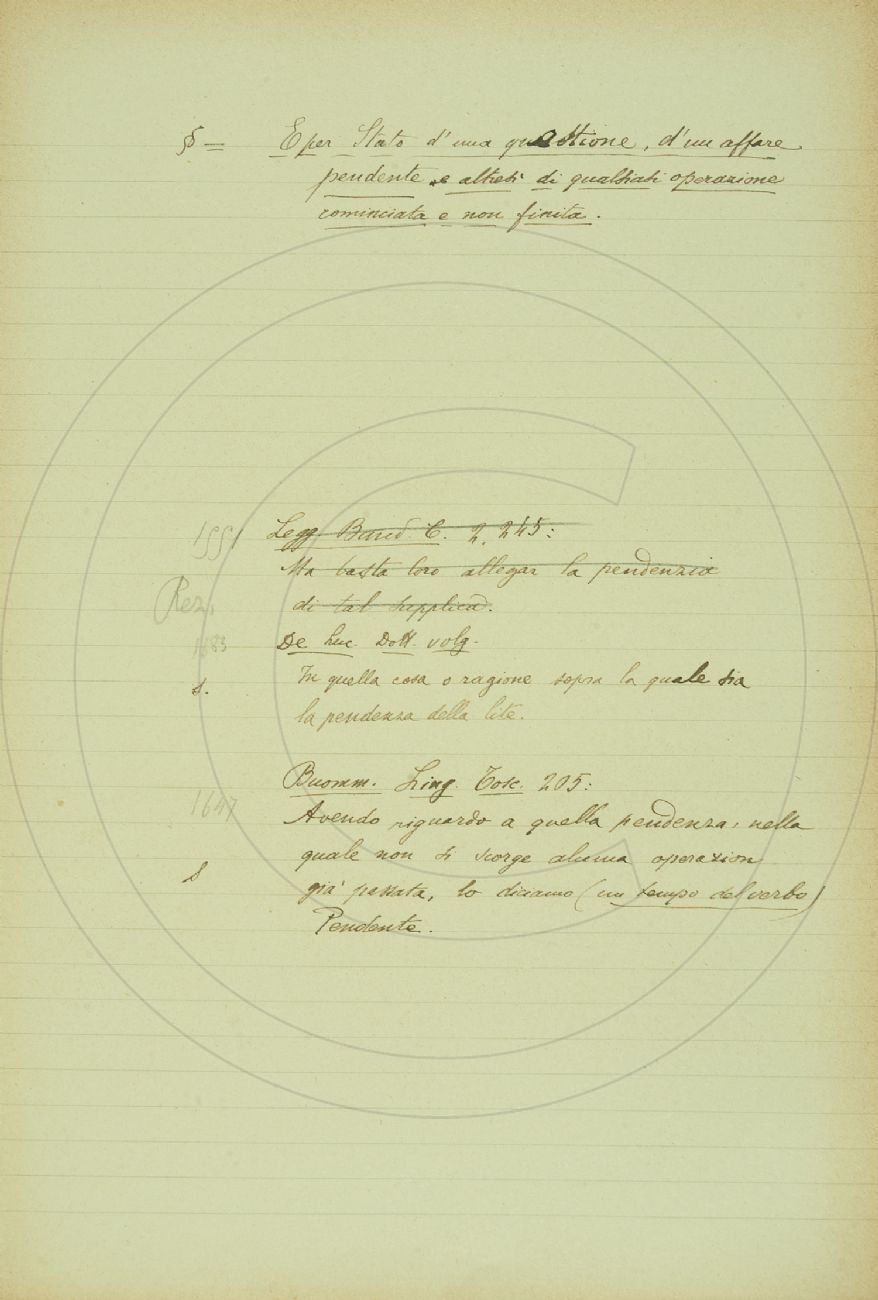 § — E per Stato d'una questione, d'un affare
pendente e altresì di qualsiasi operazione
cominciata e non finita.
1551 Legg. Band. C. 2. 245:
Ma basta loro allegar la pendenzia
Rez. di tal supplica.
1683 De Luc. Dott. volg.
s. In quella cosa o ragione sopra la quale sia
la pendenza della lite.
Buomm. Ling. Tosc. 205:
1647 Avendo riguardo a quella pendenza, nella
quale non si scorge alcuna operazion
s già passata, lo diciamo (un tempo del verbo)
Pendente.